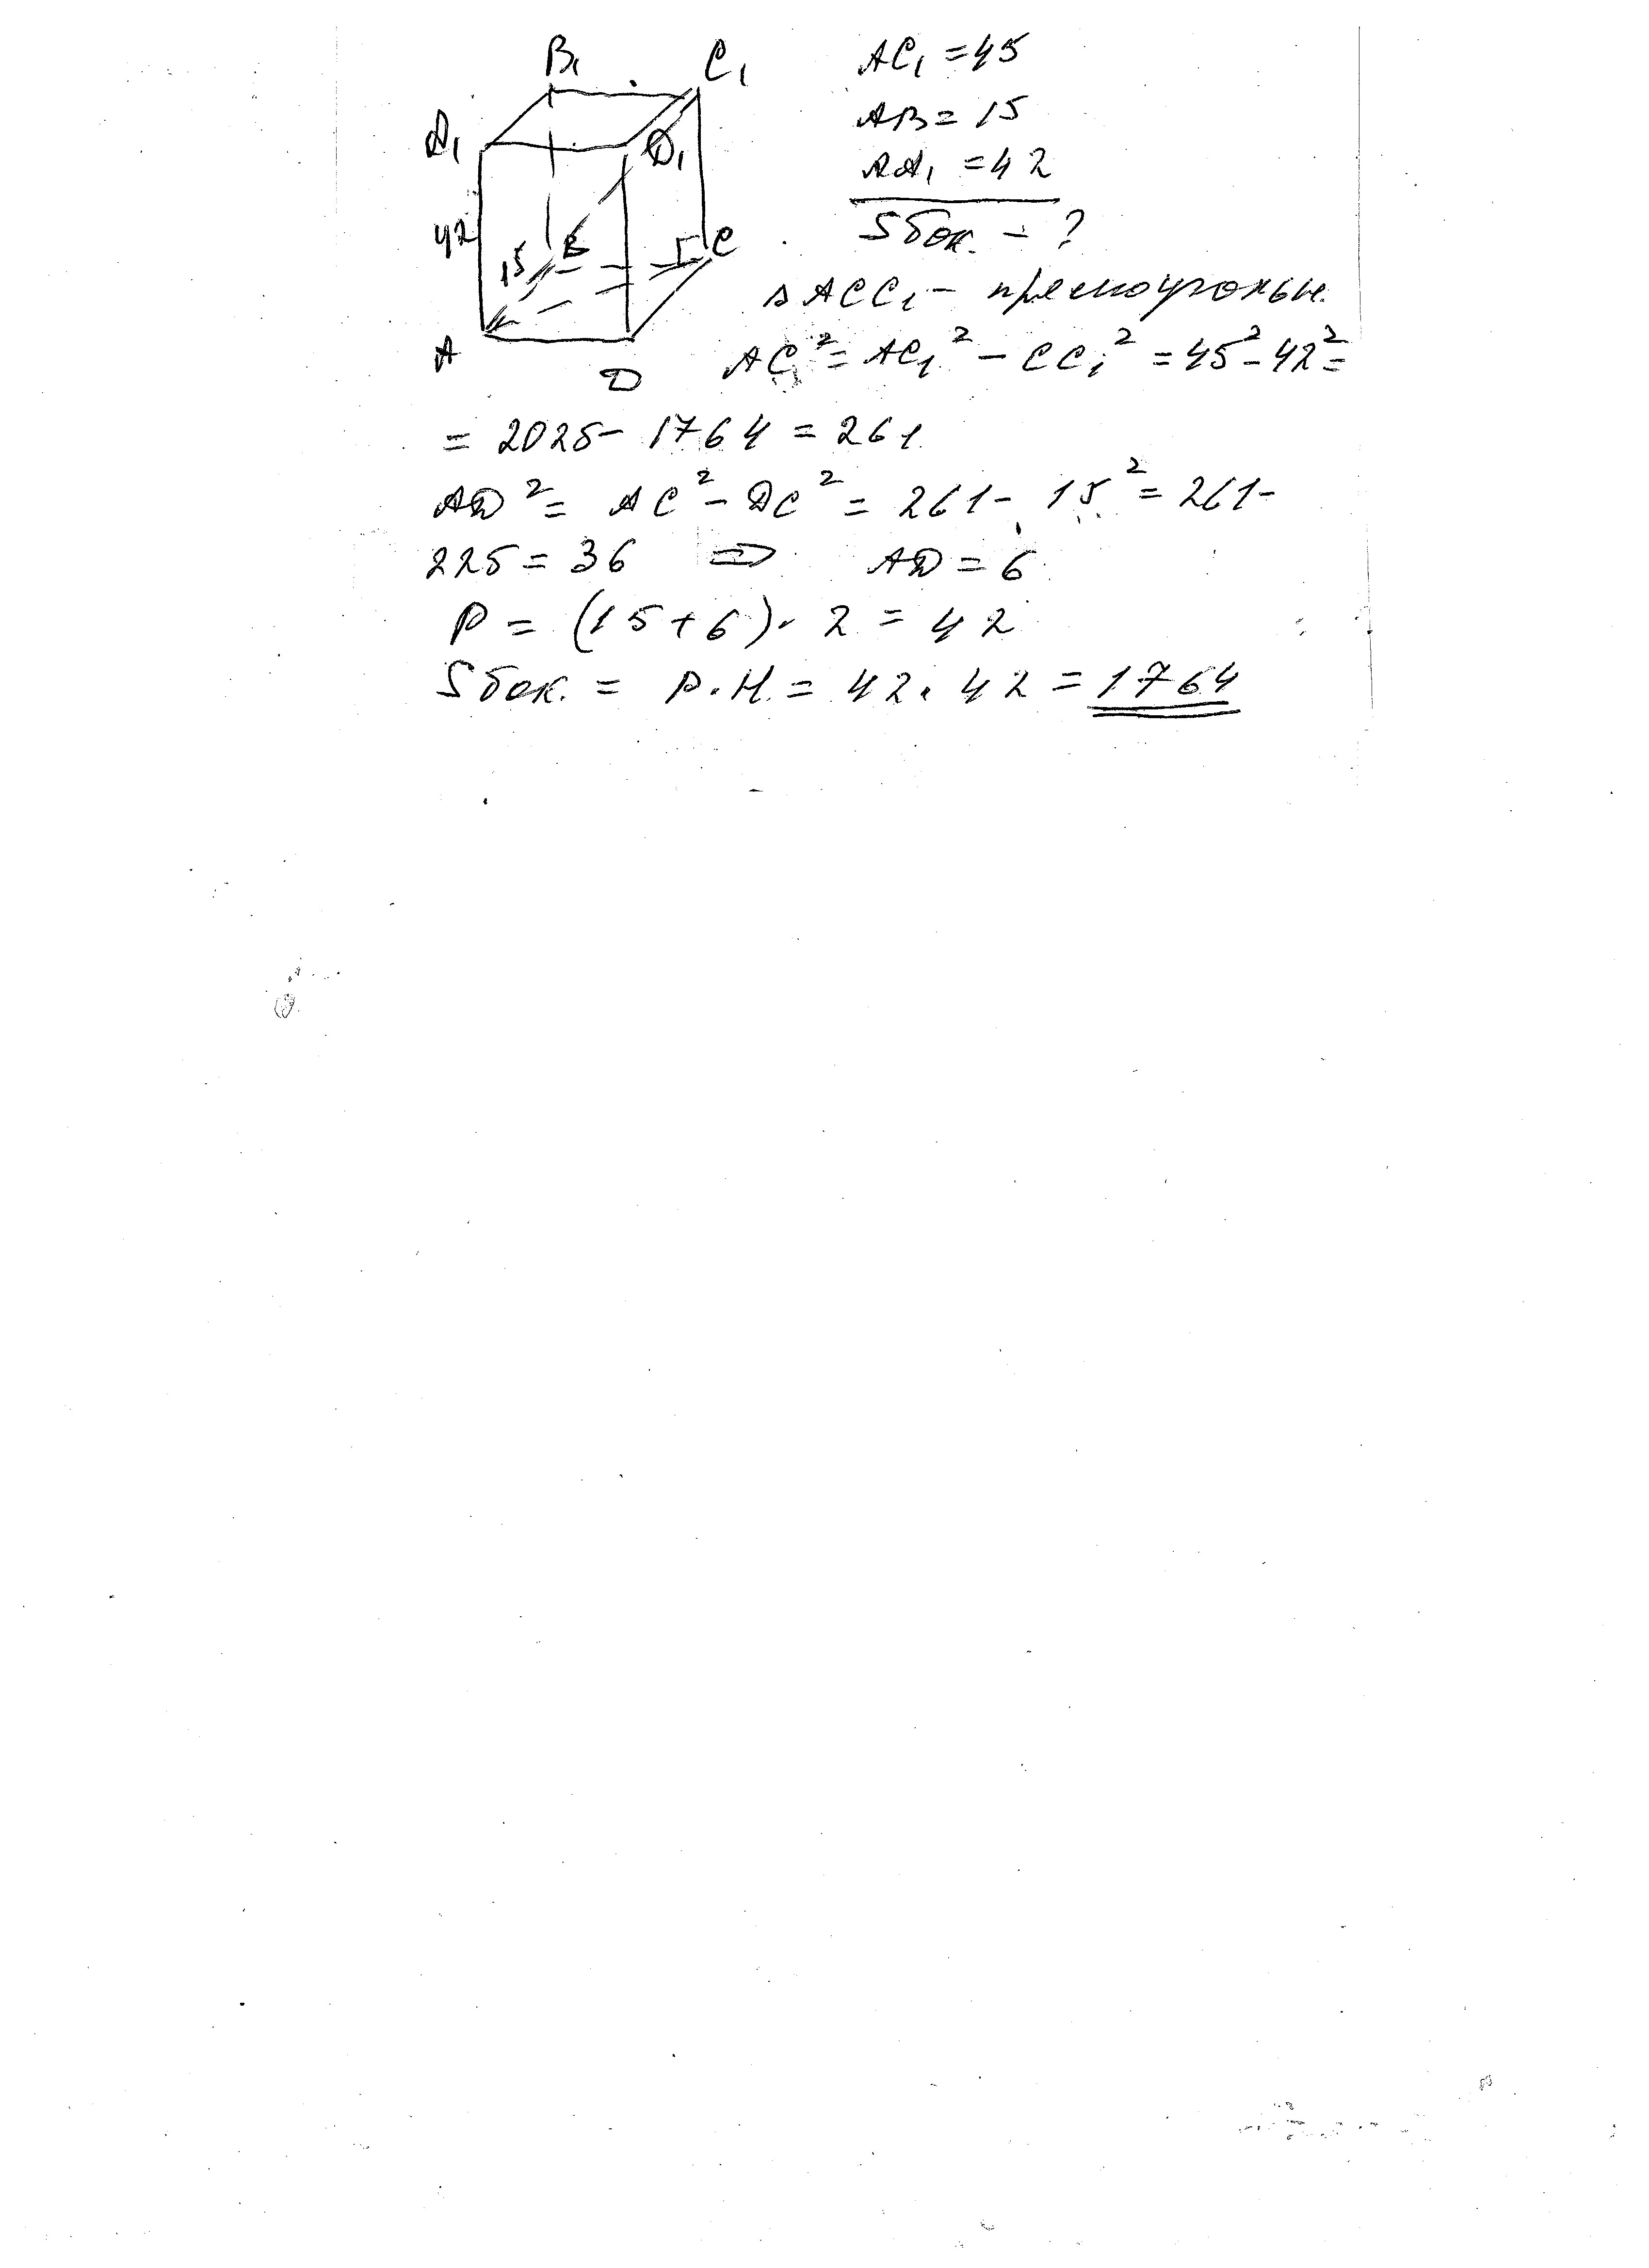 B₁ C₁
A₁ D₁
42
15 B C
A D
AC₁ = 45
AB = 15
AA₁ = 42
Sбок. - ?
△ACC₁ - прямоугольн.
AC² = AC₁² - CC₁² = 45² - 42² =
= 2025 - 1764 = 261
AD² = AC² - DC² = 261 - 15² = 261 -
225 = 36 ⇒ AD = 6
P = (15 + 6) · 2 = 42
Sбок. = P · H = 42 · 42 = 1764